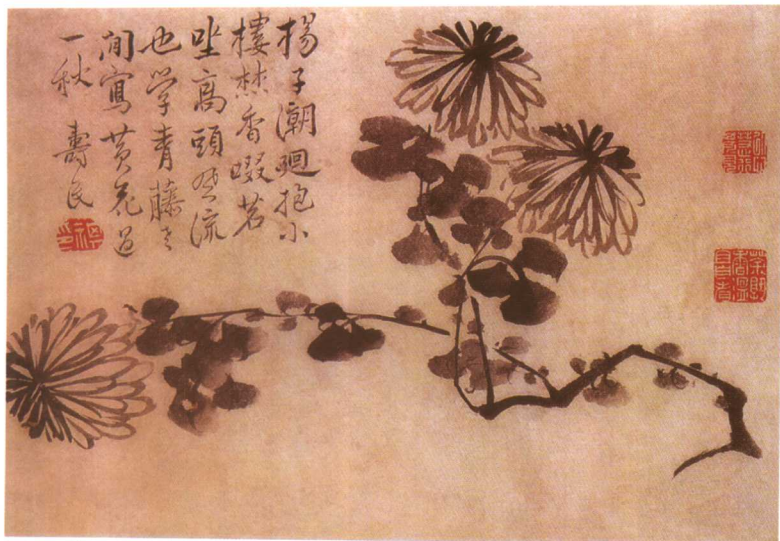 楊子潮廻抱小
樓焚香啜茗
坐高頭風流
也学青藤老
閒寫黃花過
一秋 壽民